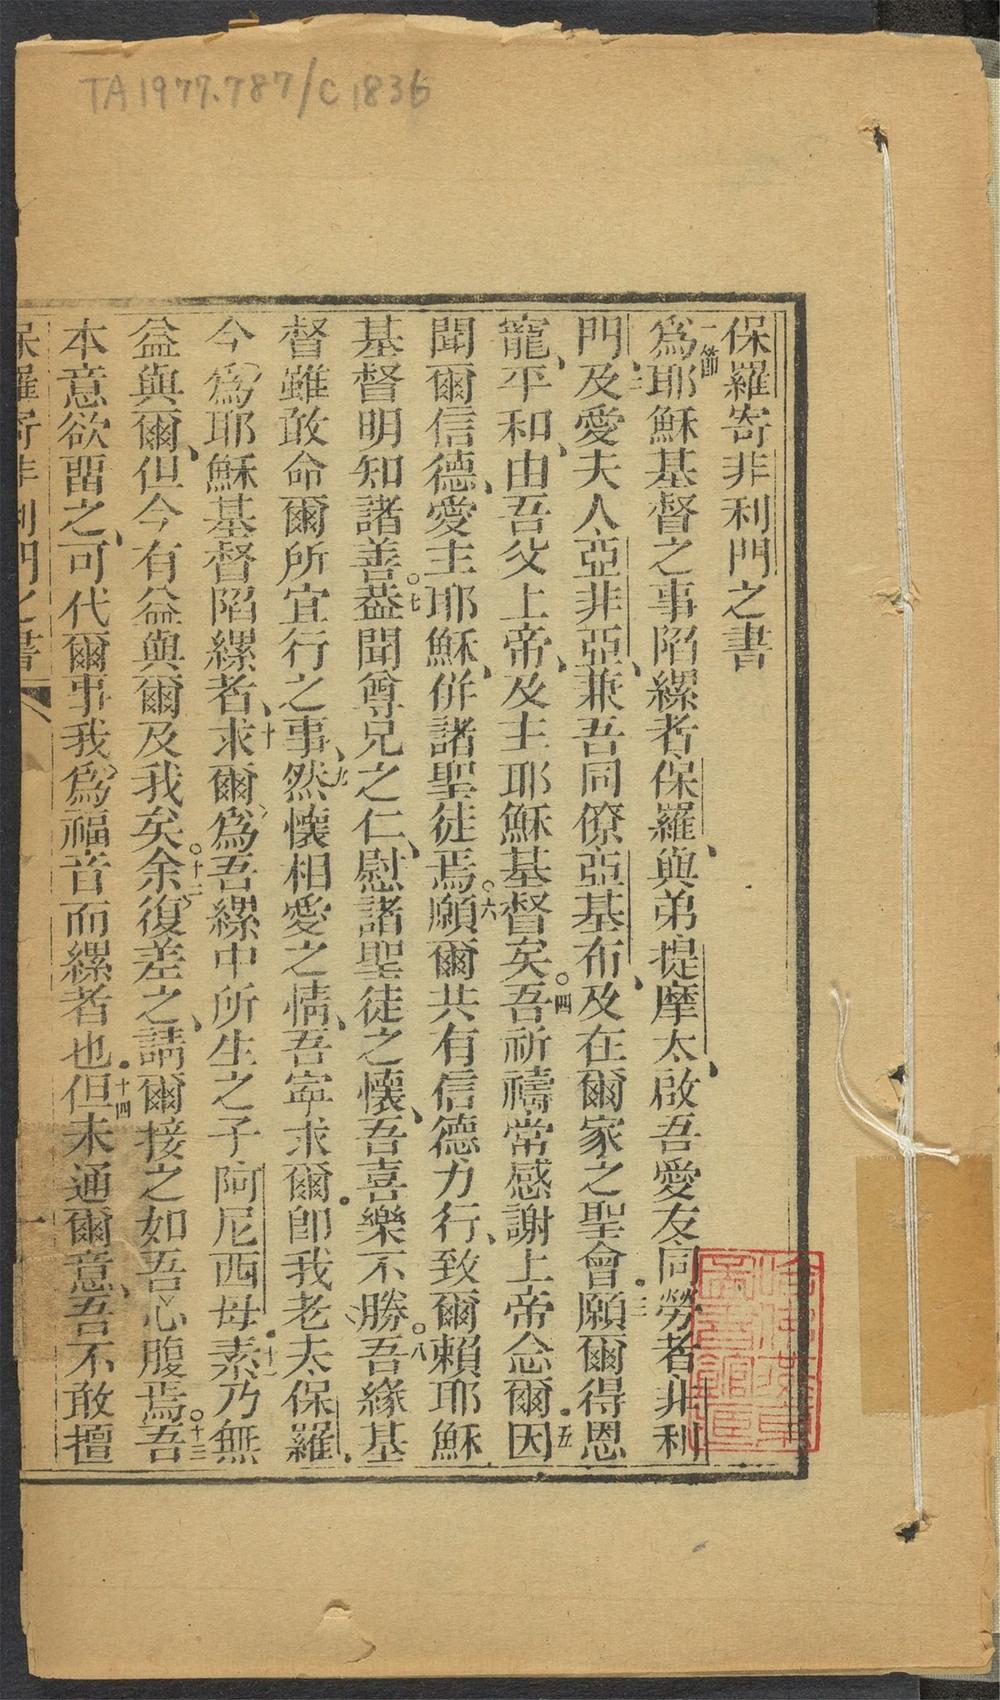 TA 1977.787/C1836
保羅寄非利門之書
一節爲耶穌基督之事陷縲者保羅、與弟提摩太、啟吾愛友同勞者非利
門、二及愛夫人亞非亞、兼吾同僚亞基布、及在爾家之聖會。三願爾得恩
寵、平和、由吾父上帝、及主耶穌基督矣。四吾祈禱常感謝上帝念爾。五因
聞爾信德、愛主耶穌、併諸聖徒焉。六願爾共有信德力行、致爾賴耶穌
基督明知諸善。七葢聞尊兄之仁、慰諸聖徒之懷、吾喜樂不勝。八吾緣基
督雖敢命爾所宜行之事、九然懷相愛之情、吾寧求爾。卽我老夫保羅、
今爲耶穌基督陷縲者、十求爾爲吾縲中所生之子阿尼西母。十一素乃無
益與爾、但今有益與爾及我矣。十二余復差之、請爾接之如吾心腹焉。十三吾
本意欲畱之、可代爾事我爲福音而縲者也。十四但未通爾意、吾不敢擅
保羅寄非利門之書 一